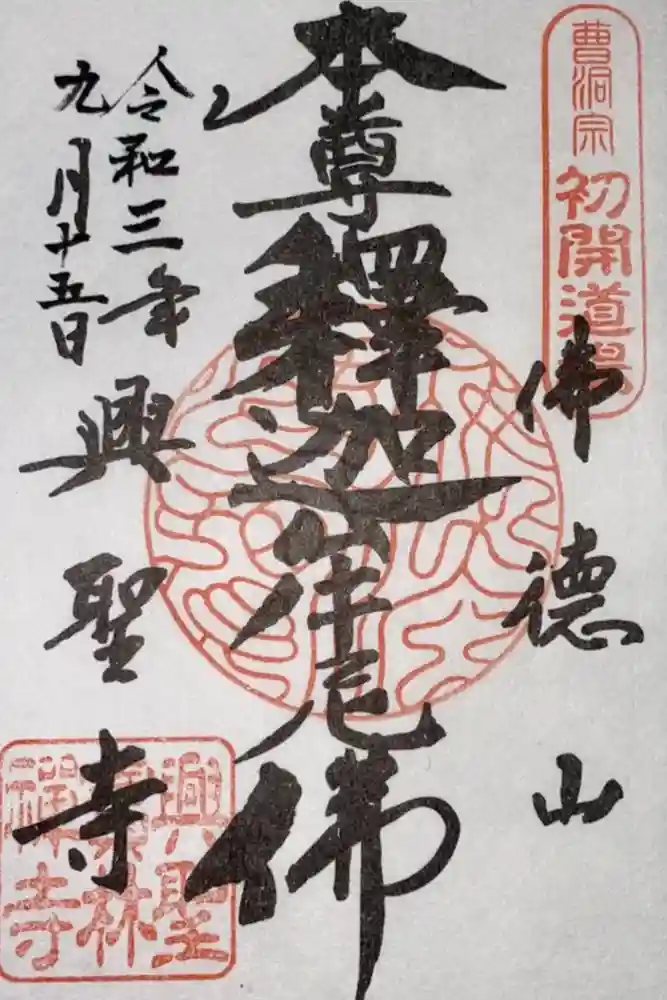 曹洞宗
初開道場
佛徳山
本尊釋迦牟尼佛
令和三年
九月十五日
興聖寺
興聖
寶林
禪寺